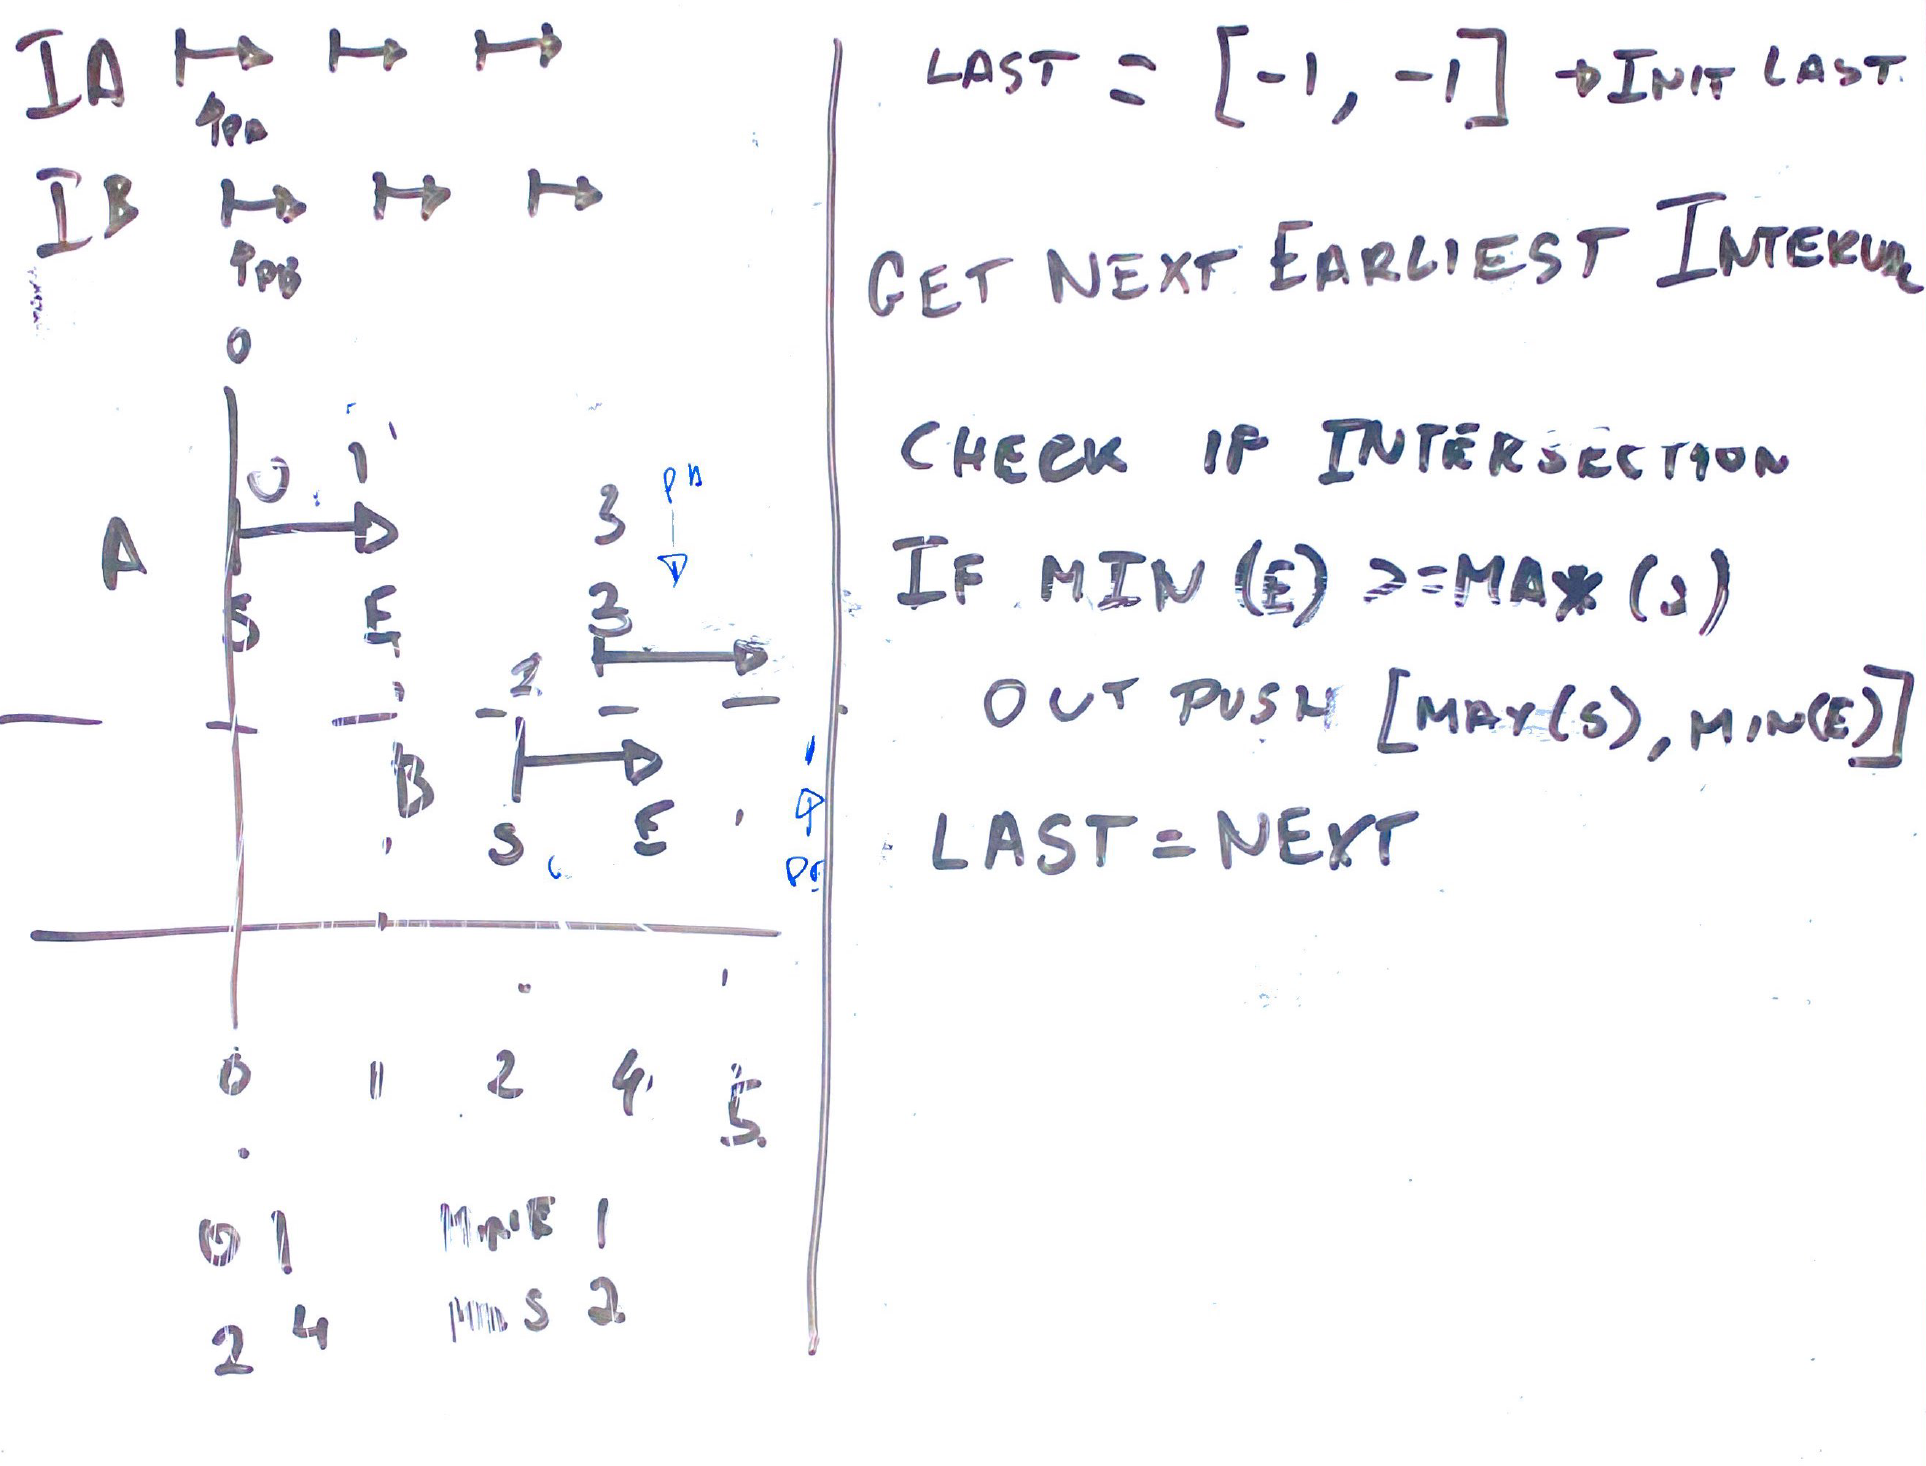 IA
PA
IB
PB
0
0 1
A
3
PA
S E
3
2
B
S E
0 1 2 4 5
0 1
2 4
MIN E 1
S 2
LAST = [-1, -1] → INIT LAST.
GET NEXT EARLIEST INTERVAL
CHECK IF INTERSECTION
IF MIN (E) >=MAX (S)
OUT PUSH [MAX(S), MIN(E)]
LAST = NEXT